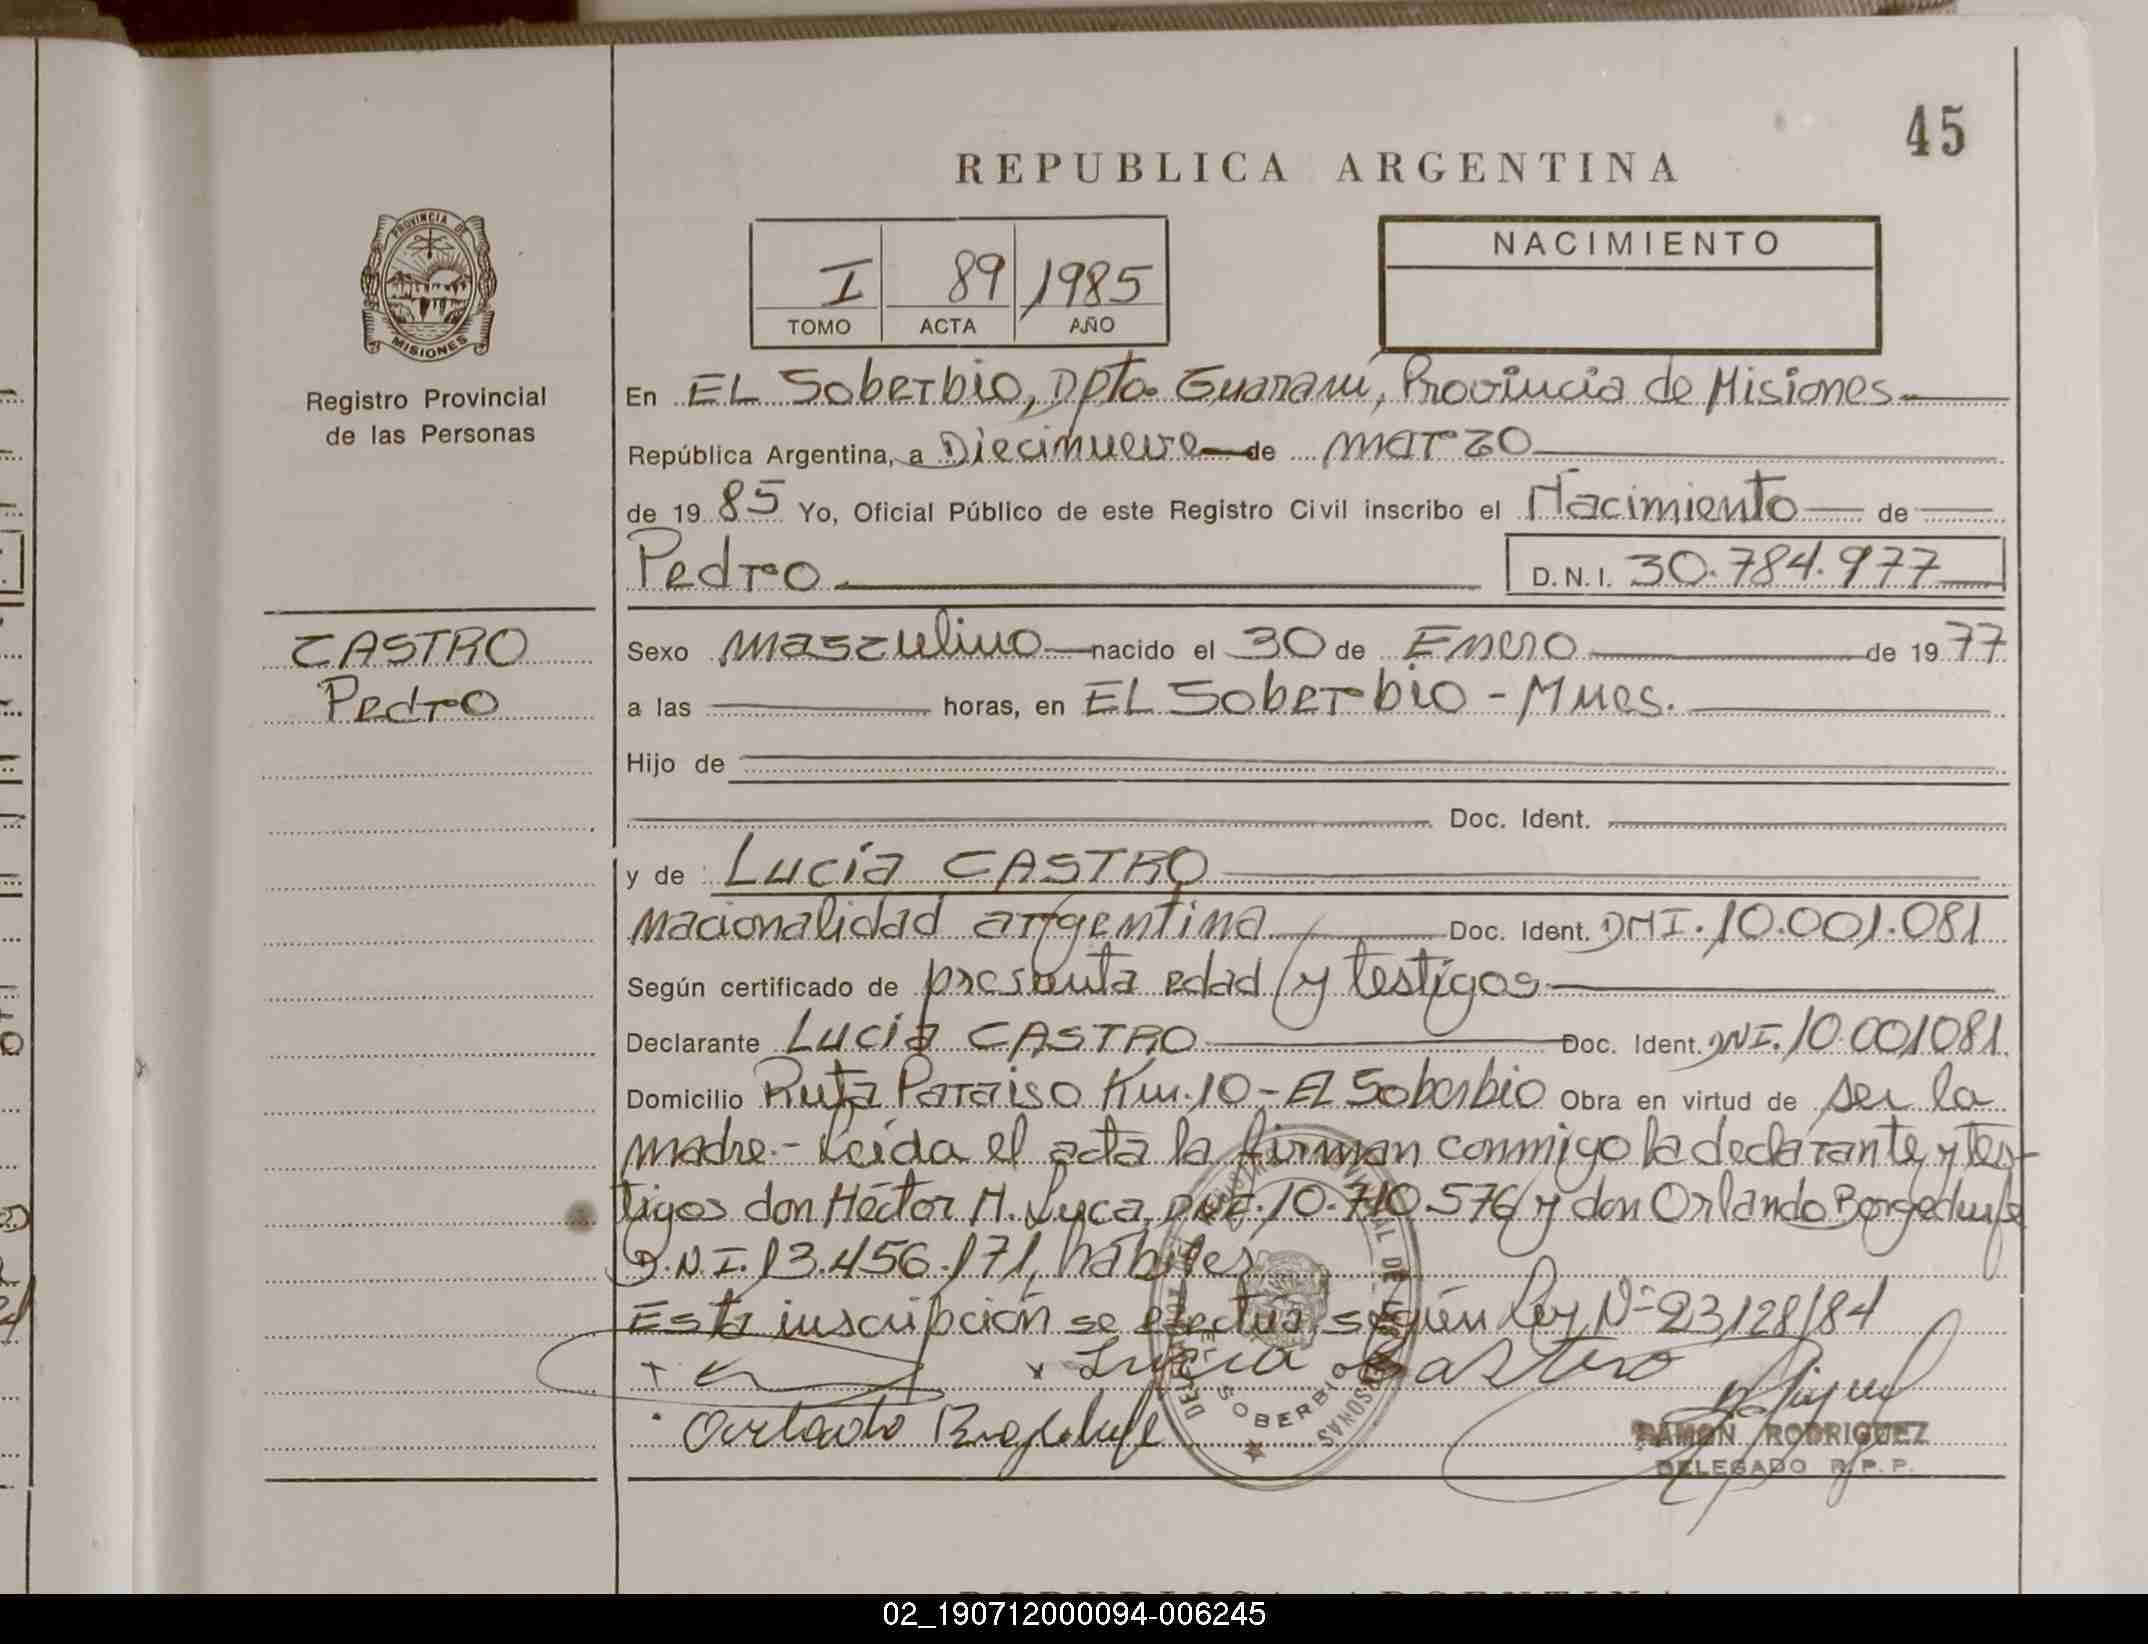 45
REPUBLICA ARGENTINA
PROVINCIA DE
MISIONES
Registro Provincial
de las Personas
I 89 1985
TOMO ACTA AÑO
NACIMIENTO
En EL Soberbio, Dpto. Guaraní, Provincia de Misiones
República Argentina, a Diecinueve de marzo
de 19 85 Yo, Oficial Público de este Registro Civil inscribo el Nacimiento de
Pedro D.N.I. 30.784.977
CASTRO
Pedro
Sexo masculino nacido el 30 de Enero de 19 77
a las horas, en EL Soberbio - Mnes.
Hijo de
Doc. Ident.
y de Lucía CASTRO
nacionalidad argentina Doc. Ident. DNI. 10.001.081
Según certificado de presunta edad y testigos
Declarante Lucía CASTRO Doc. Ident. DNI. 10.001081
Domicilio Ruta Paraiso Km. 10 - EL Soberbio Obra en virtud de ser la
madre.- Leída el acta la firman conmigo la declarante y tes-
tigos don Héctor H. Lyca, DNI. 10.710.576 y don Orlando
D.N.I. 13.456.171, hábiles
Esta inscripción se efectúa según Ley Nº 23128/84
Lucia Castro
SOBERBIO
RAMON RODRIGUEZ
DELEGADO R.P.P.
REPUBLICA ARGENTINA
02_190712000094-006245